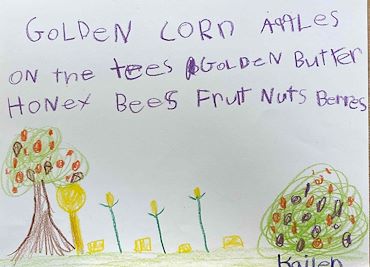 GOLDEN CORN APPLES
ON the tees GOLDEN Butter
HONEY BEES FRUIT NUTS Berres
Kailen